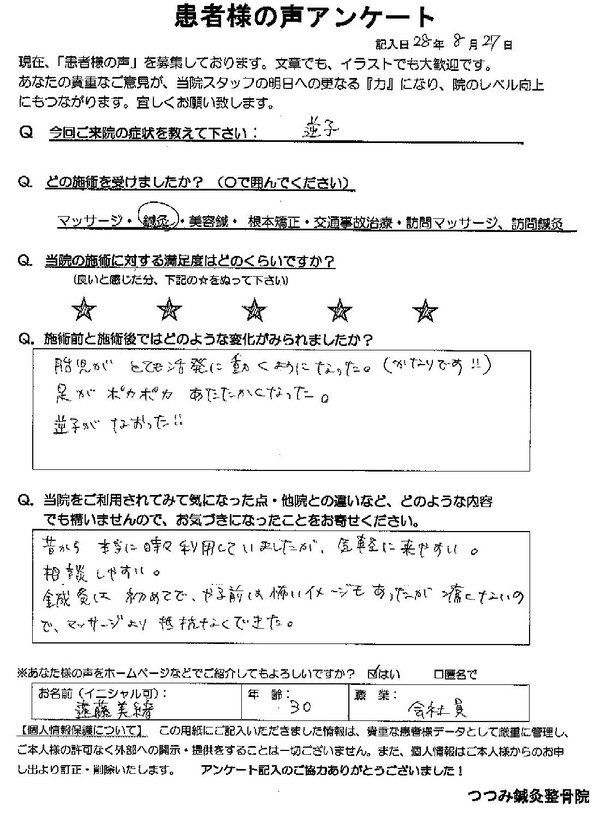 患者様の声アンケート
記入日 28年 8月 27日
現在、「患者様の声」を募集しております。文章でも、イラストでも大歓迎です。
あなたの貴重なご意見が、当院スタッフの明日への更なる『力』になり、院のレベル向上
にもつながります。宜しくお願い致します。
Q 今回ご来院の症状を教えて下さい： 逆子
Q. どの施術を受けましたか？（○で囲んでください）
マッサージ・鍼灸・美容鍼・根本矯正・交通事故治療・訪問マッサージ、訪問鍼灸
Q. 当院の施術に対する満足度はどのくらいですか？
（良いと感じた分、下記の☆をぬって下さい）
☆ ☆ ☆ ☆ ☆
Q. 施術前と施術後ではどのような変化がみられましたか？
胎児が とても活発に動くようになった。（かなりです!!）
足が ポカポカ あたたかくなった。
逆子が なおった!!
Q. 当院をご利用されてみて気になった点・他院との違いなど、どのような内容
でも構いませんので、お気づきになったことをお寄せください。
昔から 本当に時々利用していましたが、気軽に来やすい。
相談しやすい。
鍼灸は 初めてで、やる前は怖いイメージもあったが 痛くないの
で、マッサージより 抵抗なくできた。
※あなた様の声をホームページなどでご紹介してもよろしいですか？ ☑はい □匿名で
お名前（イニシャル可）： 遠藤美緒 年 齢： 30 職 業： 会社員
【個人情報保護について】 この用紙にご記入いただきました情報は、貴重な患者様データとして厳重に管理し、
ご本人様の許可なく外部への開示・提供をすることは一切ございません。また、個人情報はご本人様からのお申
し出より訂正・削除いたします。 アンケート記入のご協力ありがとうございました！
つつみ鍼灸整骨院